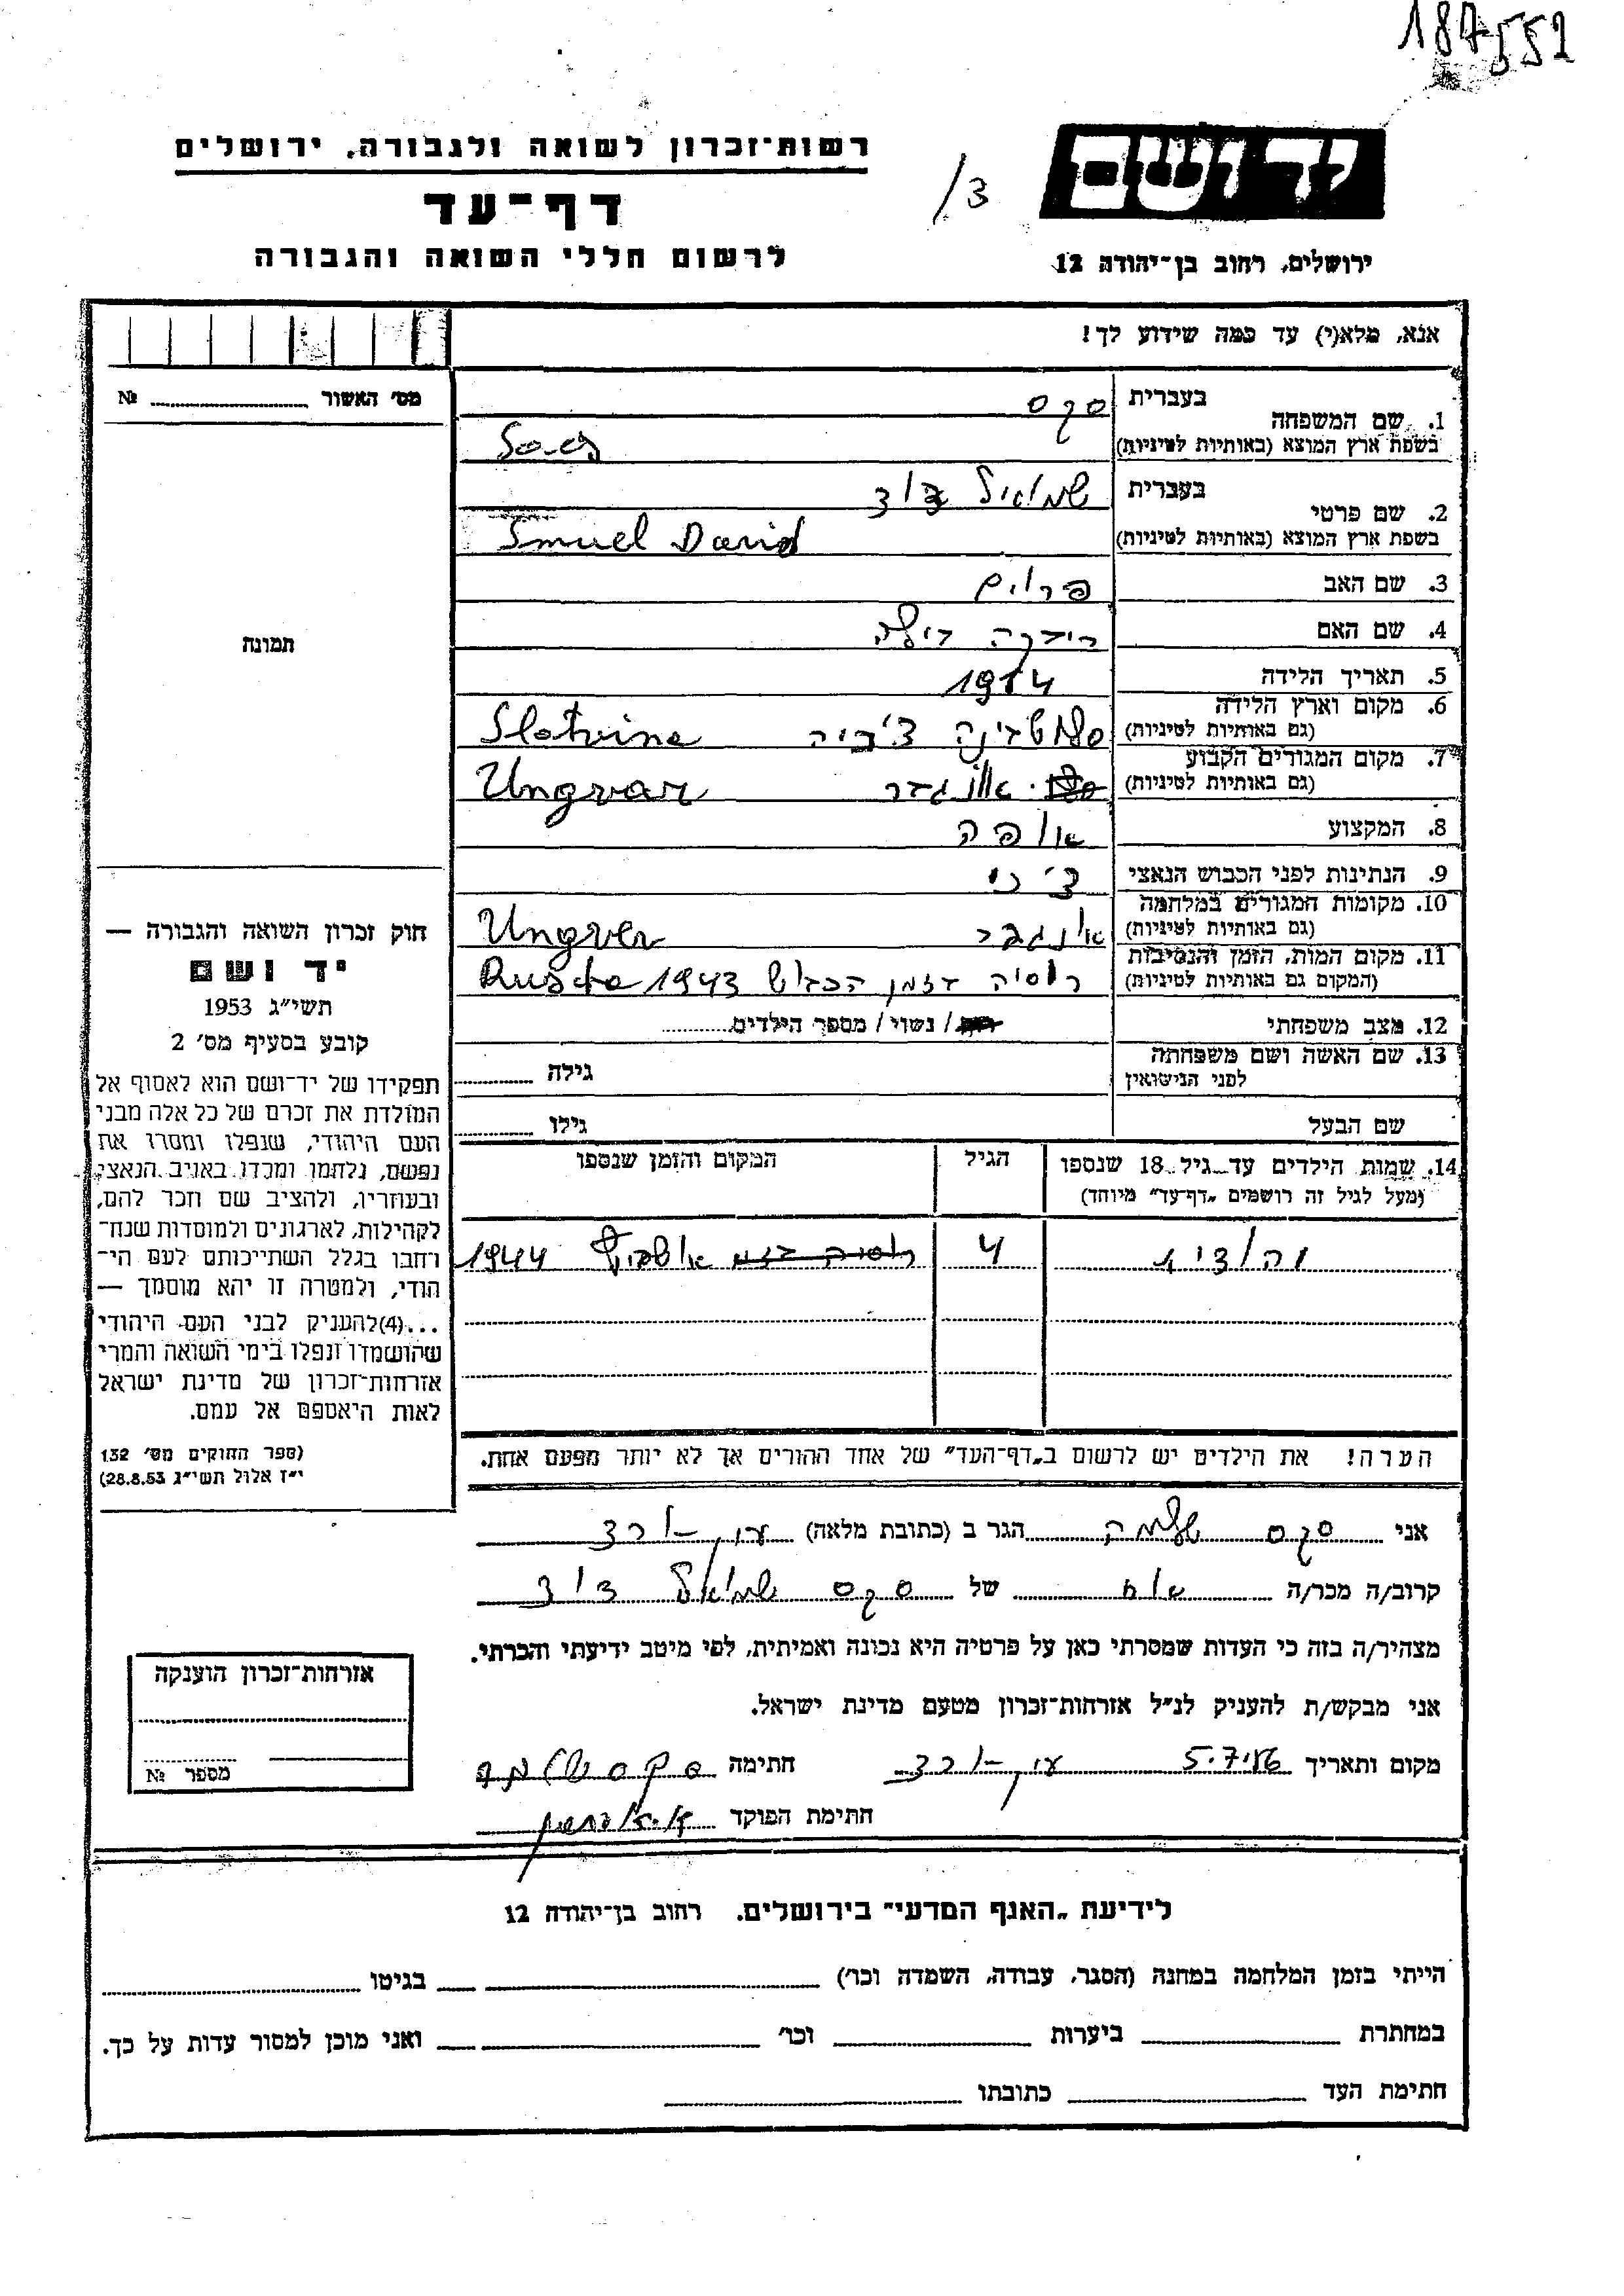 187552
רשות־זכרון לשואה ולגבורה, ירושלים
דף־עד
לרשום חללי השואה והגבורה
/3
ידושם
ירושלים, רחוב בן־יהודה 12
אנא, מלא(י) עד כמה שידוע לך!
מס׳ האשור № 
תמונה
1. שם המשפחה
בעברית סקס
בשפת ארץ המוצא (באותיות לטיניות)
2. שם פרטי
בעברית שמואל דוד
בשפת ארץ המוצא (באותיות לטיניות) Smuel David
3. שם האב פרוים
4. שם האם
5. תאריך הלידה 1914
6. מקום וארץ הלידה
(גם באותיות לטיניות) סלוטבינה צ׳כיה Slotvina
7. מקום המגורים הקבוע
(גם באותיות לטיניות) אונגור Ungvar
8. המקצוע אופה
9. הנתינות לפני הכבוש הנאצי צ׳כי
10. מקומות המגורים במלחמה
(גם באותיות לטיניות) אונגבר Ungver
11. מקום המות, הזמן והנסיבות
(המקום גם באותיות לטיניות) רוסיה בזמן הכבוש 1943
12. מצב משפחתי רוק / נשוי / מספר הילדים
13. שם האשה ושם משפחתה
לפני הנישואין
גילה
שם הבעל
גילו
14. שמות הילדים עד גיל 18 שנספו
(מעל לגיל זה רושמים „דף־עד” מיוחד)
הגיל
המקום והזמן שנספו
יהודית 4 אושביץ 1944
הערה! את הילדים יש לרשום ב„דף־העד” של אחד ההורים אך לא יותר מפעם אחת.
חוק זכרון השואה והגבורה —
יד ושם
תשי״ג 1953
קובע בסעיף מס׳ 2
תפקידו של יד־ושם הוא לאסוף אל
המולדת את זכרם של כל אלה מבני
העם היהודי, שנפלו ומסרו את
נפשם, נלחמו ומרדו באויב הנאצי
ובעוזריו, ולהציב שם וזכר להם,
לקהילות, לארגונים ולמוסדות שנח־
רחבו בגלל השתייכותם לעם הי־
הודי, ולמטרה זו יהא מוסמך —
...(4) להעניק לבני העם היהודי
שהושמדו ונפלו בימי השואה והמרי
אזרחות־זכרון של מדינת ישראל
לאות היאספם אל עמם.
(ספר החוקים מס׳ 132
י״ז אלול תשי״ג 28.8.53)
אני סקס שלמה הגר ב (כתובת מלאה)
קרוב/ה מכר/ה אח של סקס שמואל דוד
מצהיר/ה בזה כי העדות שמסרתי כאן על פרטיה היא נכונה ואמיתית, לפי מיטב ידיעתי והכרתי.
אני מבקש/ת להעניק לנ״ל אזרחות־זכרון מטעם מדינת ישראל.
מקום ותאריך חתימה סקס שלמה
חתימת הפוקד
אזרחות־זכרון הוענקה
מספר №
לידיעת „האגף המדעי” בירושלים, רחוב בן־יהודה 12
הייתי בזמן המלחמה במחנה (הסגר, עבודה, השמדה וכו׳) בגיטו
במחתרת ביערות וכו׳ ואני מוכן למסור עדות על כך.
חתימת העד כתובתו